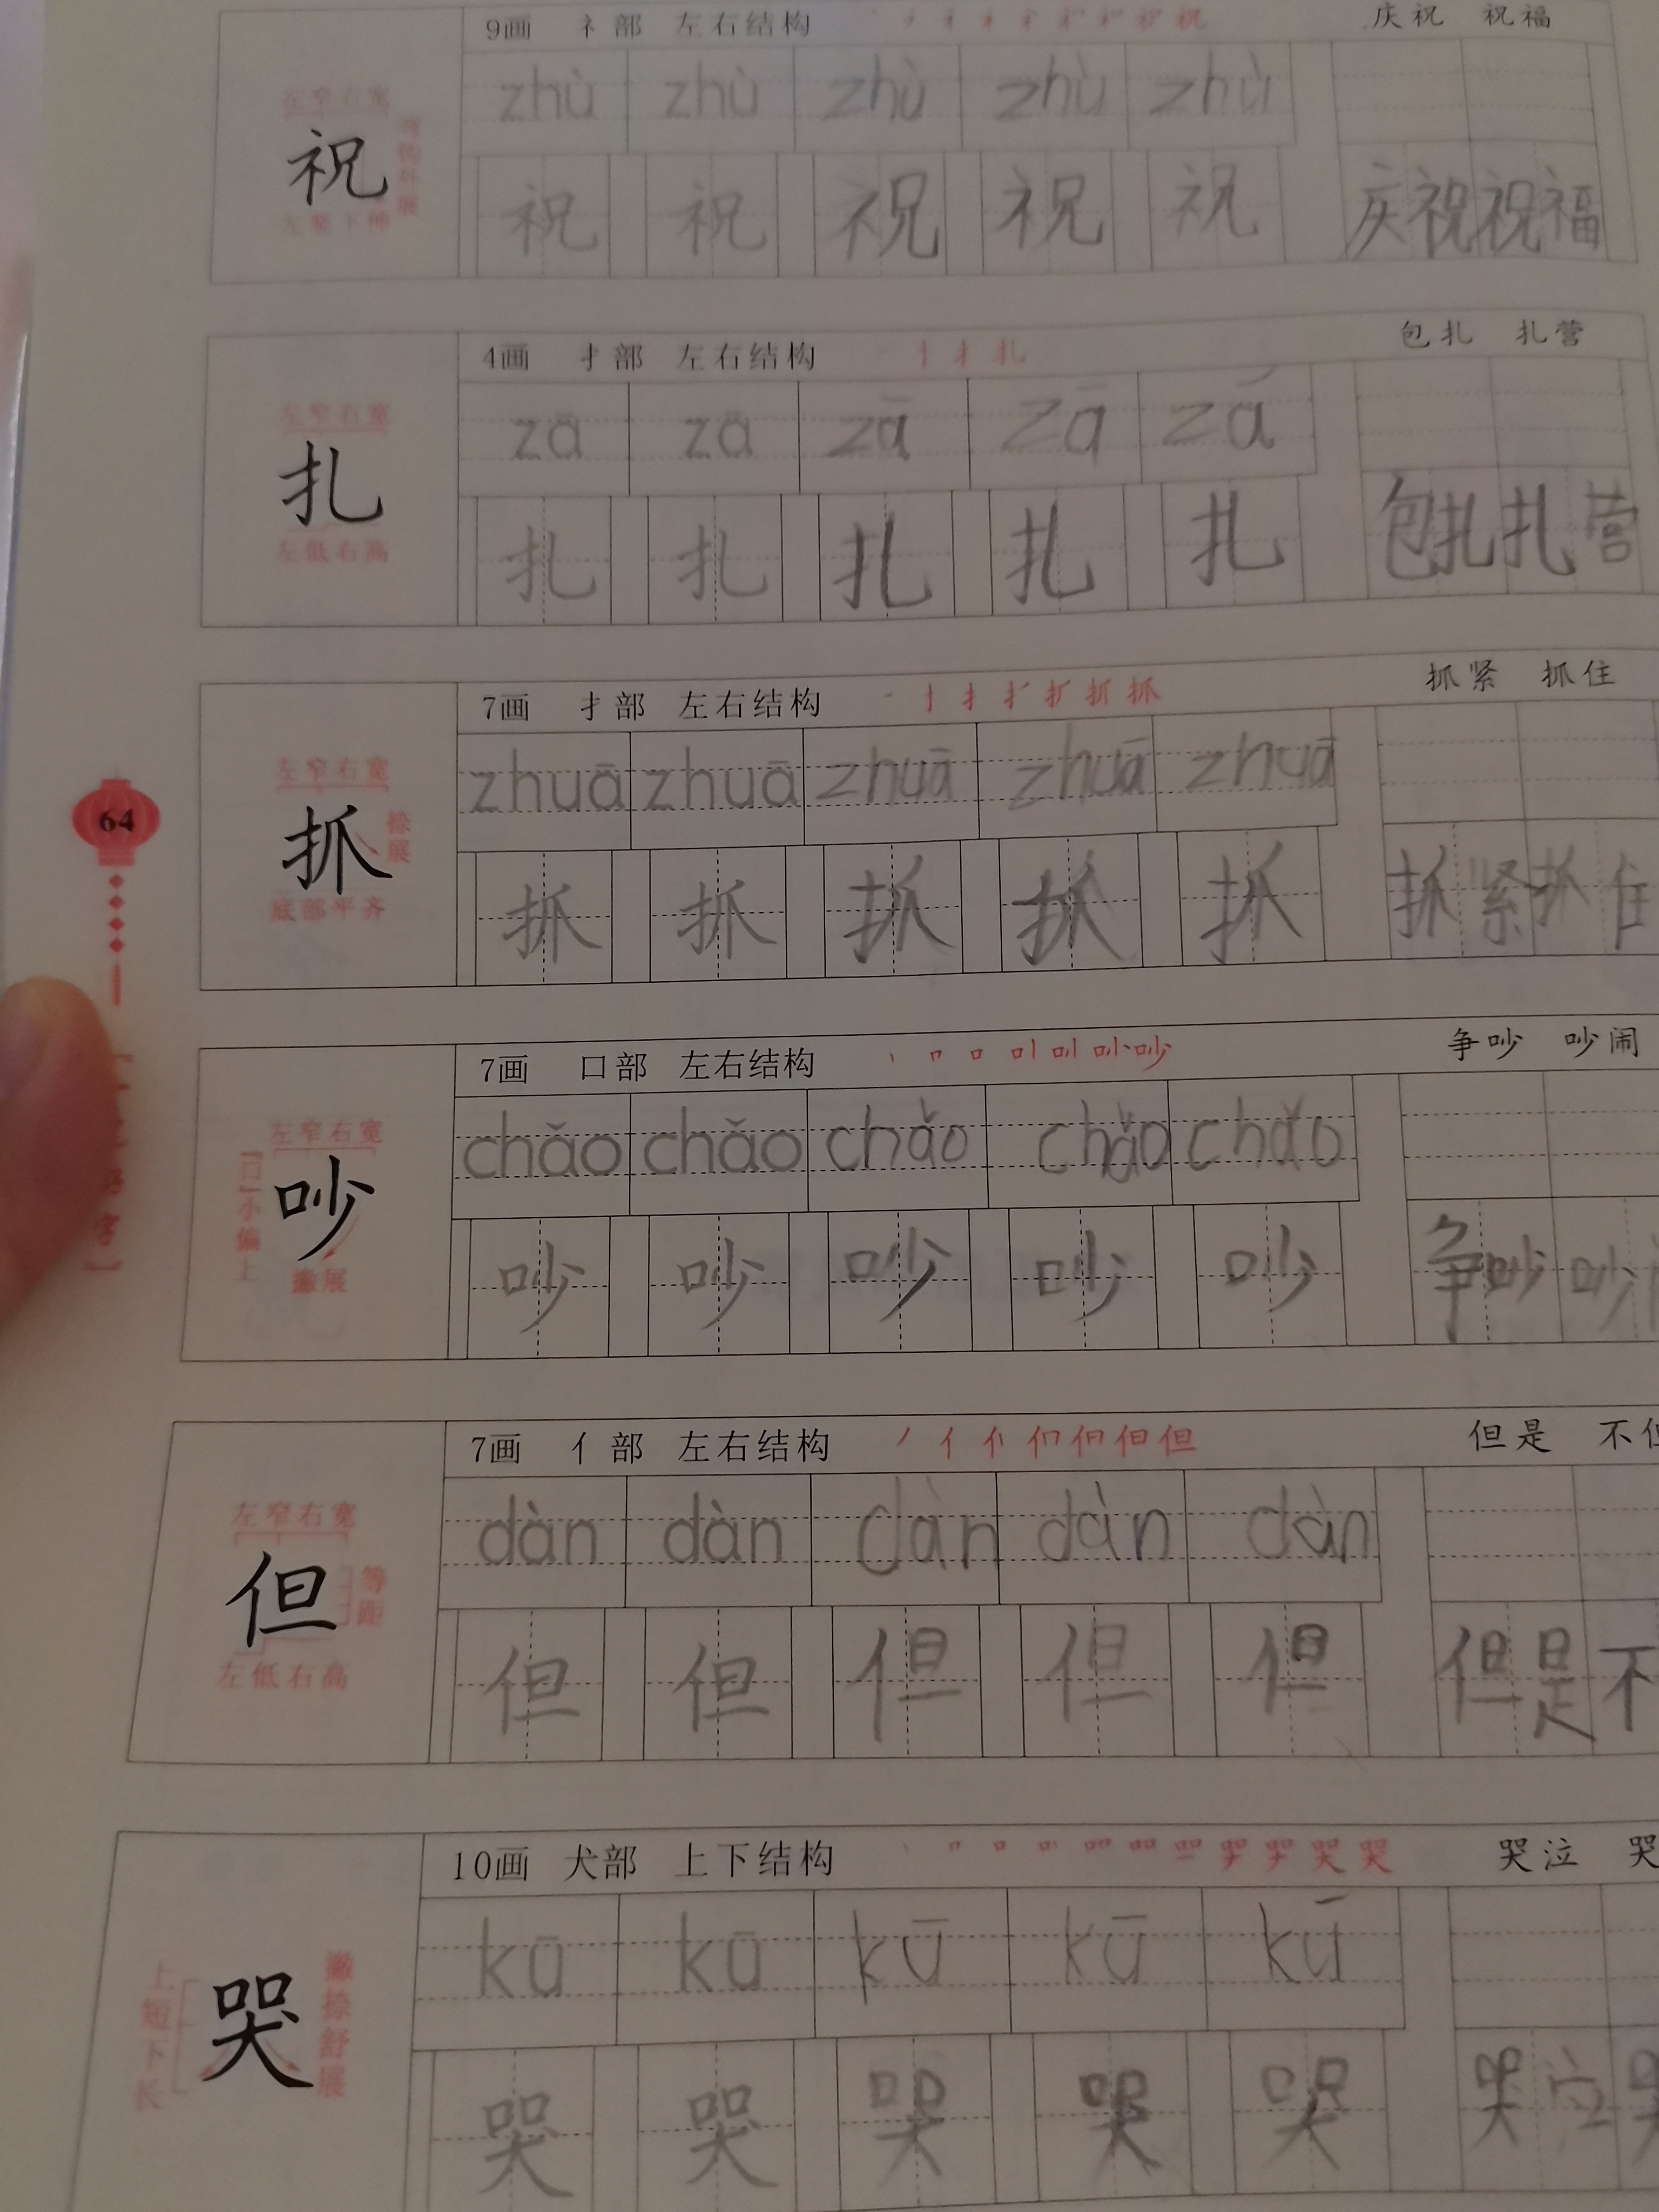 9画 礻部 左右结构 庆祝 祝福
左窄右宽
祝
zhù zhù zhù zhù zhù
祝 祝 祝 祝 祝 庆祝祝福
4画 扌部 左右结构 包扎 扎营
左窄右宽
扎
左低右高
zā zā zā zā zā
扎 扎 扎 扎 扎 包扎扎营
7画 扌部 左右结构 抓紧 抓住
左窄右宽
抓
捺展
底部平齐
zhuā zhuā zhuā zhuā zhuā
抓 抓 抓 抓 抓 抓紧抓住
64
7画 口部 左右结构 争吵 吵闹
左窄右宽
「口」小偏上
吵
撇展
chǎo chǎo chǎo chǎo chǎo
吵 吵 吵 吵 吵 争吵吵
7画 亻部 左右结构 但是 不但
左窄右宽
但
等距
左低右高
dàn dàn dàn dàn dàn
但 但 但 但 但 但是不
10画 犬部 上下结构 哭泣 哭
上短下长
哭
撇捺舒展
kū kū kū kū kū
哭 哭 哭 哭 哭 哭泣哭